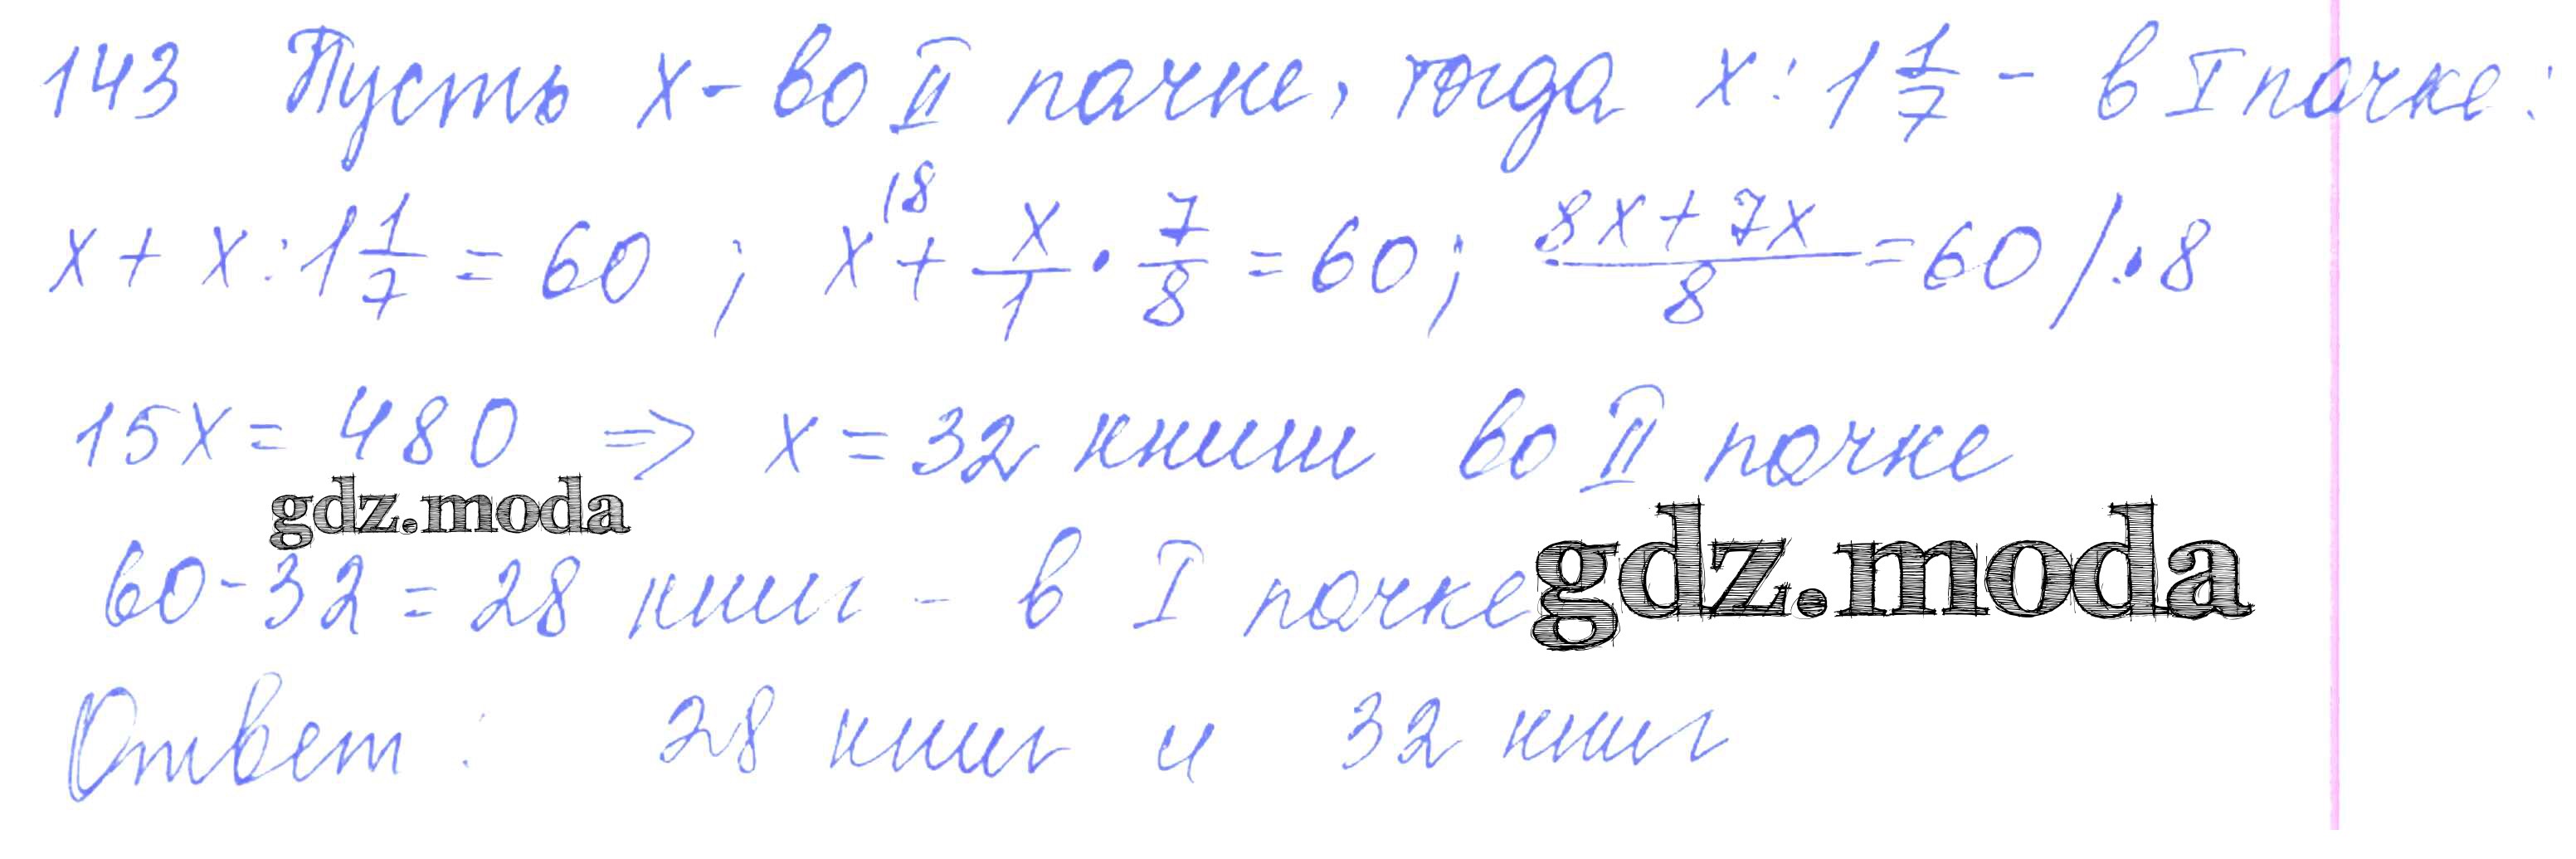 143 Пусть x - во II пачке, тогда x : 1 1/7 - в I пачке:
x + x : 1 1/7 = 60 ; x|8 + x/1 · 7/8 = 60; (8x + 7x)/8 = 60 / · 8
15x = 480 => x = 32 книги во II пачке
gdz.moda
60 - 32 = 28 книг - в I пачке
gdz.moda
Ответ: 28 книг и 32 книг